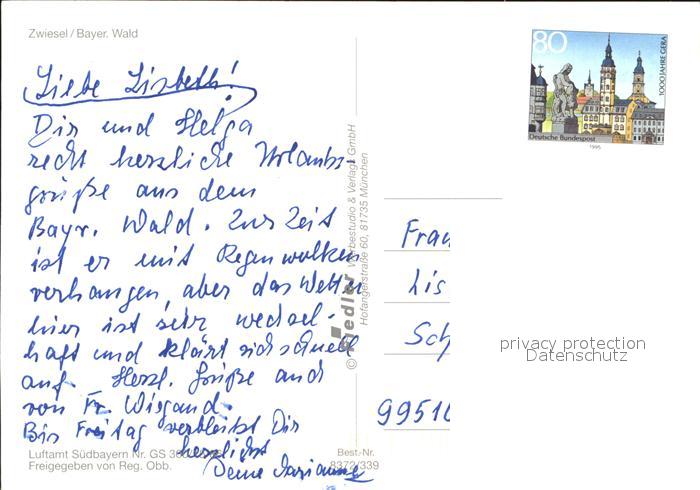 Zwiesel / Bayer. Wald
Liebe Lisbeth!
Dir und Helga
recht herzliche Urlaubs-
grüße aus dem
Bayr. Wald. Zur Zeit
ist er mit Regenwolken
verhangen, aber das Wetter
hier ist sehr wechsel-
haft und klärt sich schnell
auf. Herzl. Grüße auch
von Fr. Wiegand.
Bis Freitag verbleibt Dir
herzlichst
Deine Marianne
Luftamt Südbayern Nr. GS
Freigegeben von Reg. Obb.
Best.-Nr.
8372/339
© fiedler Werbestudio & Verlags GmbH
Hofangerstraße 60, 81735 München
80
1000 JAHRE GERA
Deutsche Bundespost
1995
Frau
Lis
Sch
99510
privacy protection
Datenschutz